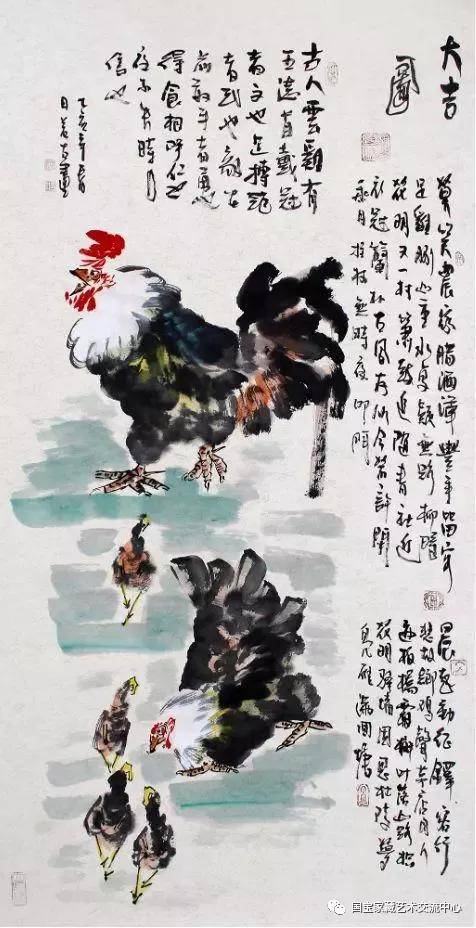 大吉
圖
莫笑農家臘酒渾豐年留客
足雞豚山重水復疑無路柳暗
花明又一村簫鼓追隨春社近
衣冠簡朴古風存從今若許閒
乘月拄杖無時夜叩門
晨起動征鐸客行
悲故鄉鷄聲茅店月人
迹板橋霜槲葉落山路枳
花明驛墻因思杜陵夢
鳧雁滿回塘
古人雲雞有
五德首戴冠
者文也足搏距
者武也敵在
前敢斗者勇也
得食相呼仁也
夜不失時
信也
国宝家藏艺术交流中心